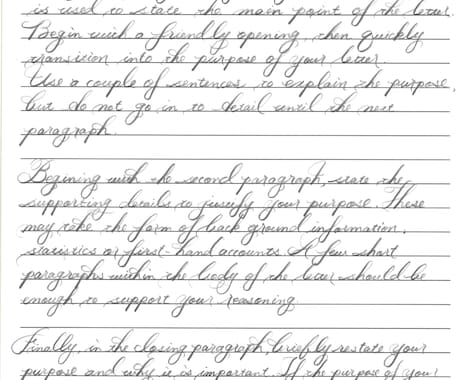 is used to state the main point of the letter.
Begin with a friendly opening, then quickly
transition into the purpose of your letter.
Use a couple of sentences to explain the purpose,
but do not go in to detail until the next
paragraph.
Begining with the second paragraph, state the
supporting details to justify your purpose. These
may take the form of back ground information,
statistics or first-hand accounts. A few short
paragraphs within the body of the letter should be
enough to support your reasoning.
Finally, in the closing paragraph, briefly restate your
purpose and why it is important. If the purpose of your